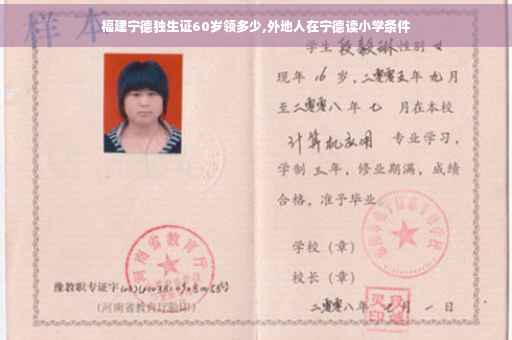 福建宁德独生证60岁领多少,外地人在宁德读小学条件
样本
学生段毅琳性别女
现年16岁,二零零五年九月
至二零零八年七月在本校
计算机应用 专业学习,
学制三年,修业期满,成绩
合格,准予毕业
学校(章)
校长(章)
二零零八年 月一日
河南省教育厅
豫教职专证字
(河南省教育厅验印)